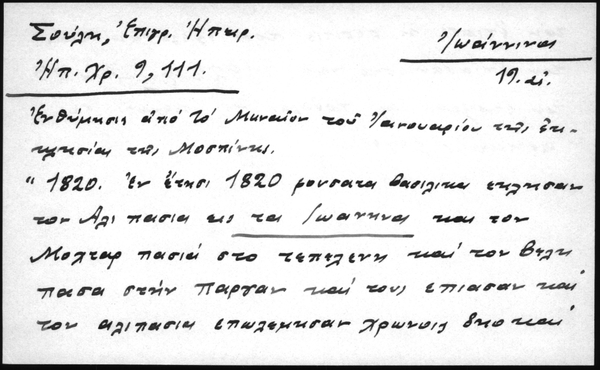 Σούλη, Ἐπιγρ. Ἠπειρ.
Ἰωάννινα
Ἠπ. Χρ. 9, 111.
19. αἰ.
Ἐνθύμησις ἀπό τό Μηναῖον τοῦ Ἰανουαρίου τῆς ἐκ-
κλησίας τῆς Μοσπίνης.
"1820. Ἐν ἔτησι 1820 μουσατα βασιλικα εκλησαν
τον Αλι πασια εις τα Ιωαννηνα και τον
Μοχταρ πασιά στο τεπελενη καί τον Βελη
πασα στήν Παργαν καί τους επιασαν καί
τον αλιπασια επωλεμησαν χρωνοις διο καί